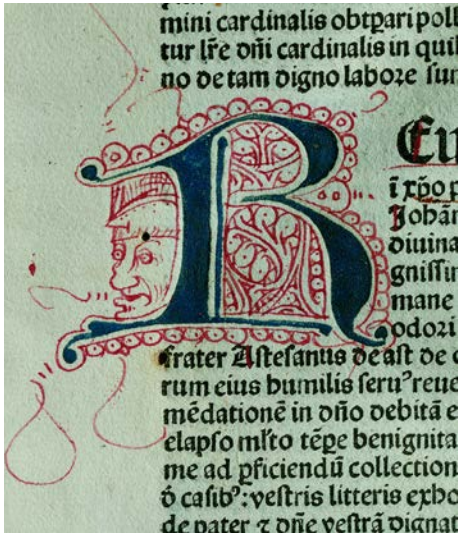 mini cardinalis obtꝑari poll
tur lr̃e dñi cardinalis in quib
no de tam digno labore sun
R
Eu
ī xp̃o p
Johãn
diuina
gnissim
mane
odori
frater Astesanus de ast de o
rum eius humilis seruꝰ reue
mẽdationẽ in dño debitã e
elapso ml̃to tẽpe benignita
me ad ꝑficiendũ collection
ó casibꝰ: vestris litteris exho
de pater ⁊ dñe vestrã dignat